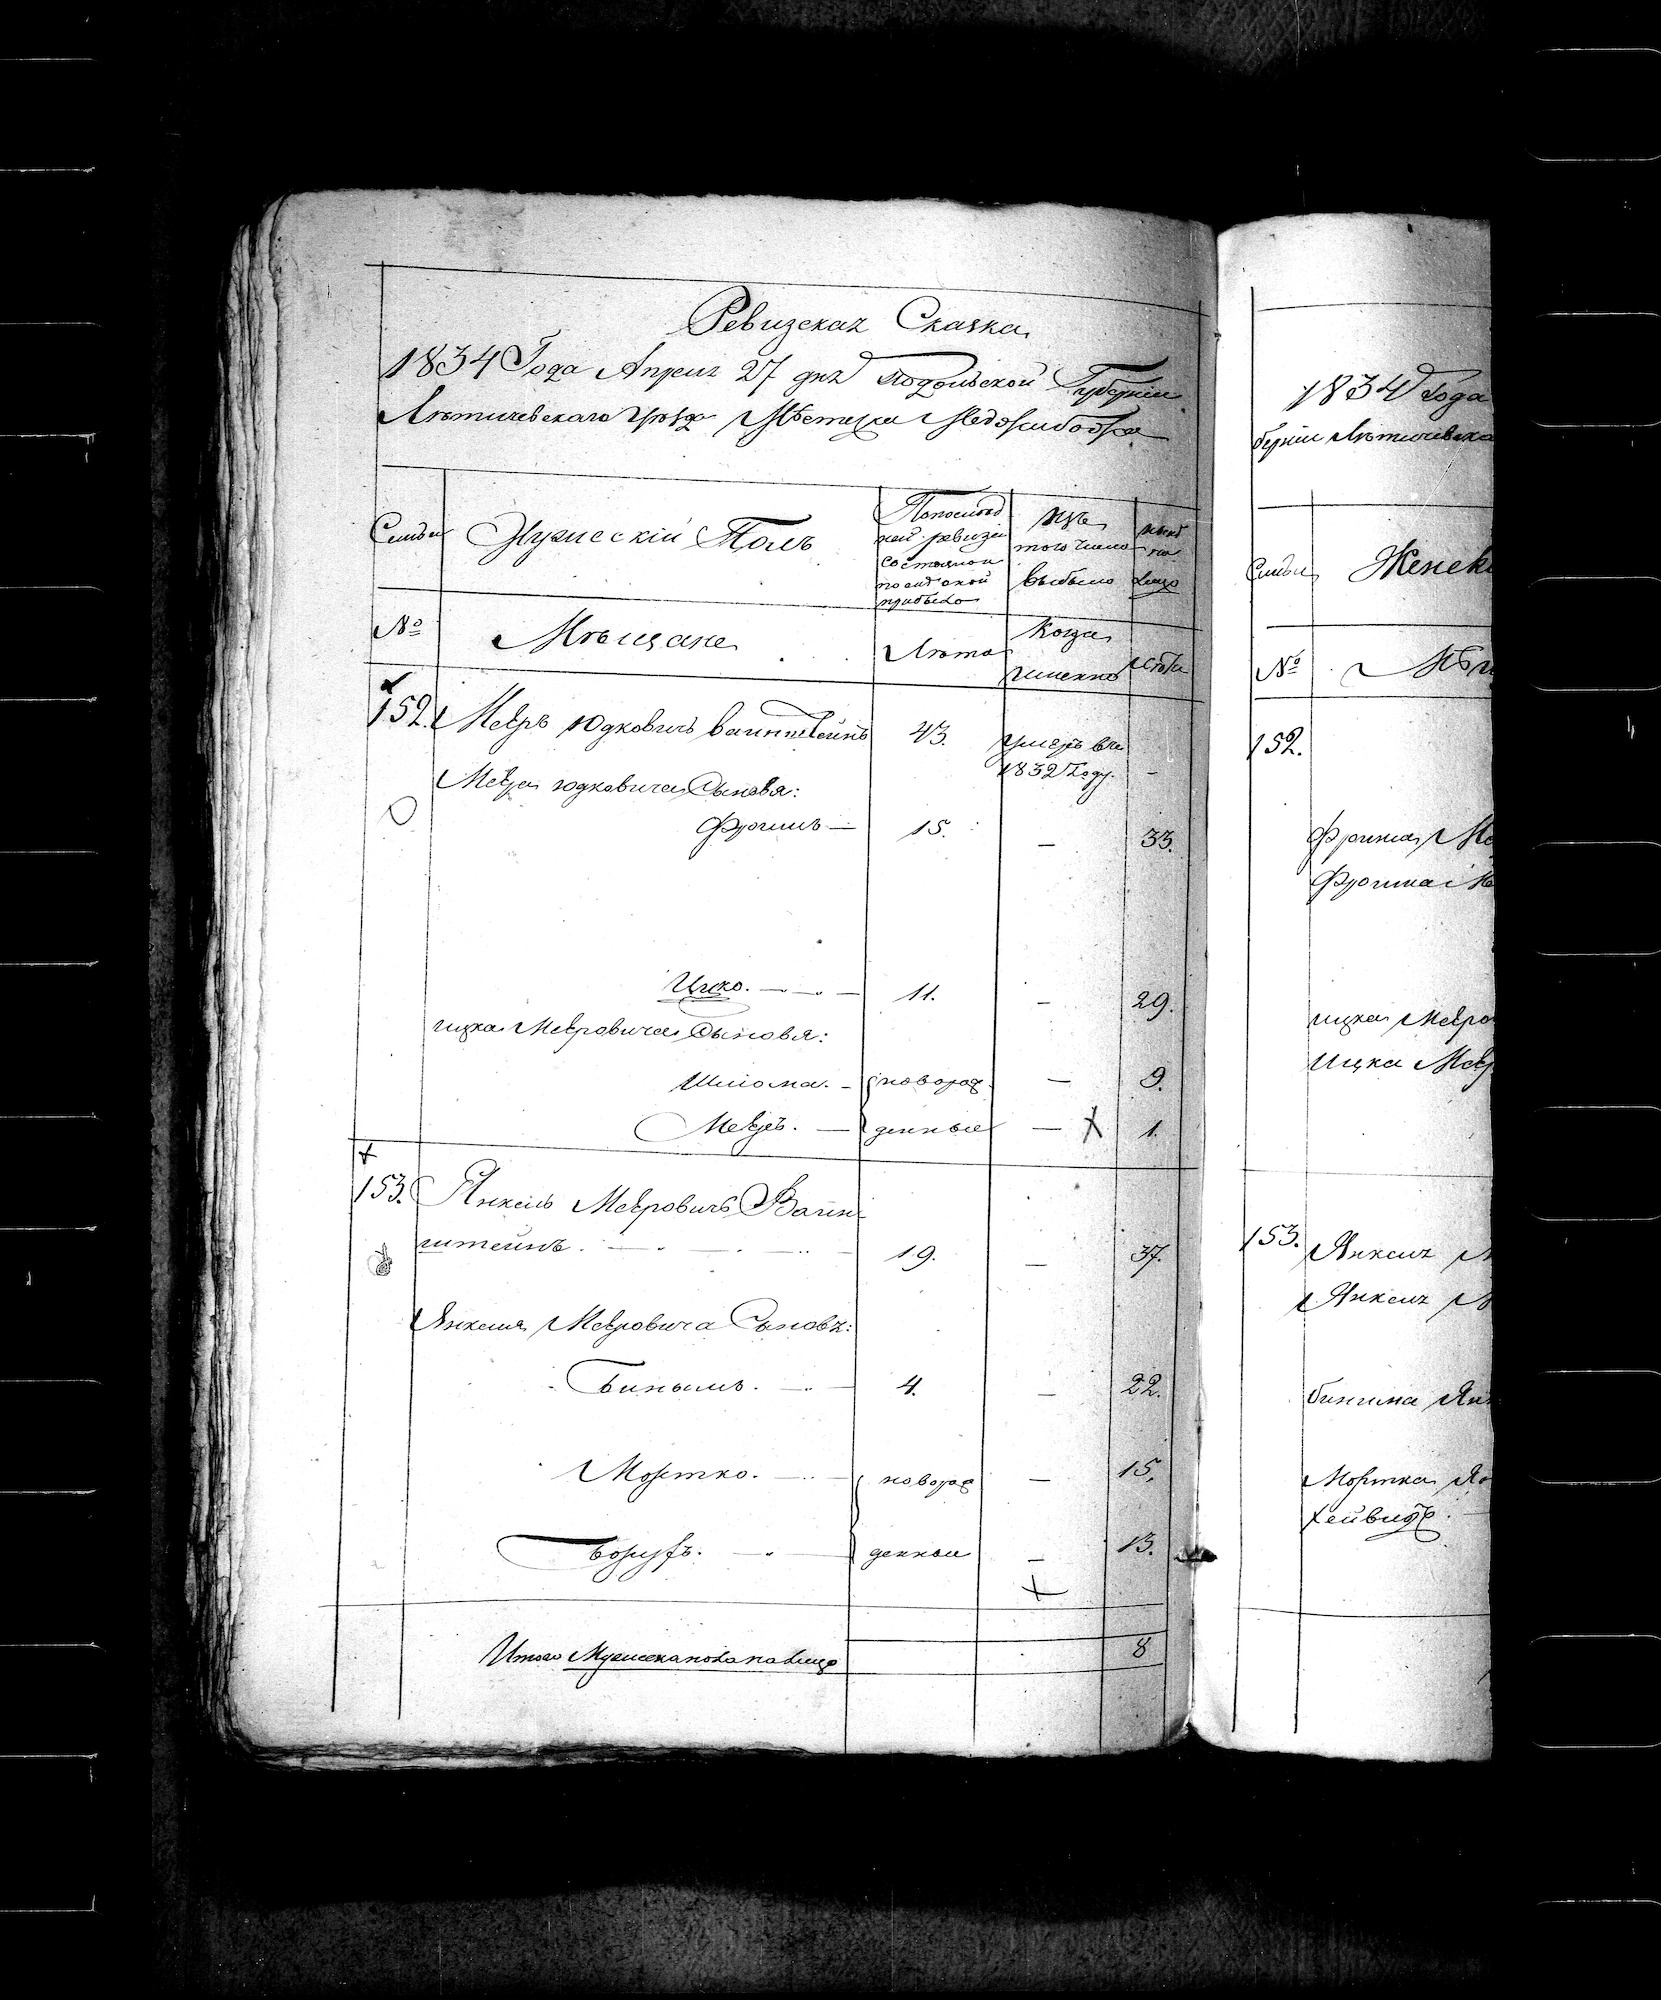 Ревизская Сказка
1834 Года Апреля 27 дня Подольской Губернии
Летичевского Уезда Местечка Меджибожа
Семьи
Мужескій Полъ
По послед
ней ревизіи
состояло и
после оной
прибыло
Изъ
того числа
выбыло
ныне
на
лицо
№
Мещане
Лета
Когда
именно
Лета
152.
Мееръ Юдковичъ Ваинштейнъ
43.
умеръ въ
1832 Году.
-
Меера Юдковича Сыновя:
Фроимъ —
15.
—
33.
Ицко. — —
11.
—
29.
Ицка Мееровича Сыновя:
Шлома. —
новорож
—
9.
Мееръ. —
денные
— X
1.
153.
Янкель Мееровичъ Ваин-
штейнъ. — — —
19.
—
37.
Янкеля Мееровича Сыновя:
Бинымъ. —
4.
—
22.
Мортко. —
новорож
—
15.
Борухъ. —
денныи
—
13.
X
Итого Мужеска пола на лицо
8
1834 Года
берніи Летичевска
Семьи
Женск
№
152.
Фроима Ме
Фроима
Ицка Мееро
Ицка Меер
153.
Янкеля М
Янкеля
Бинима Янк
Мортка Ян